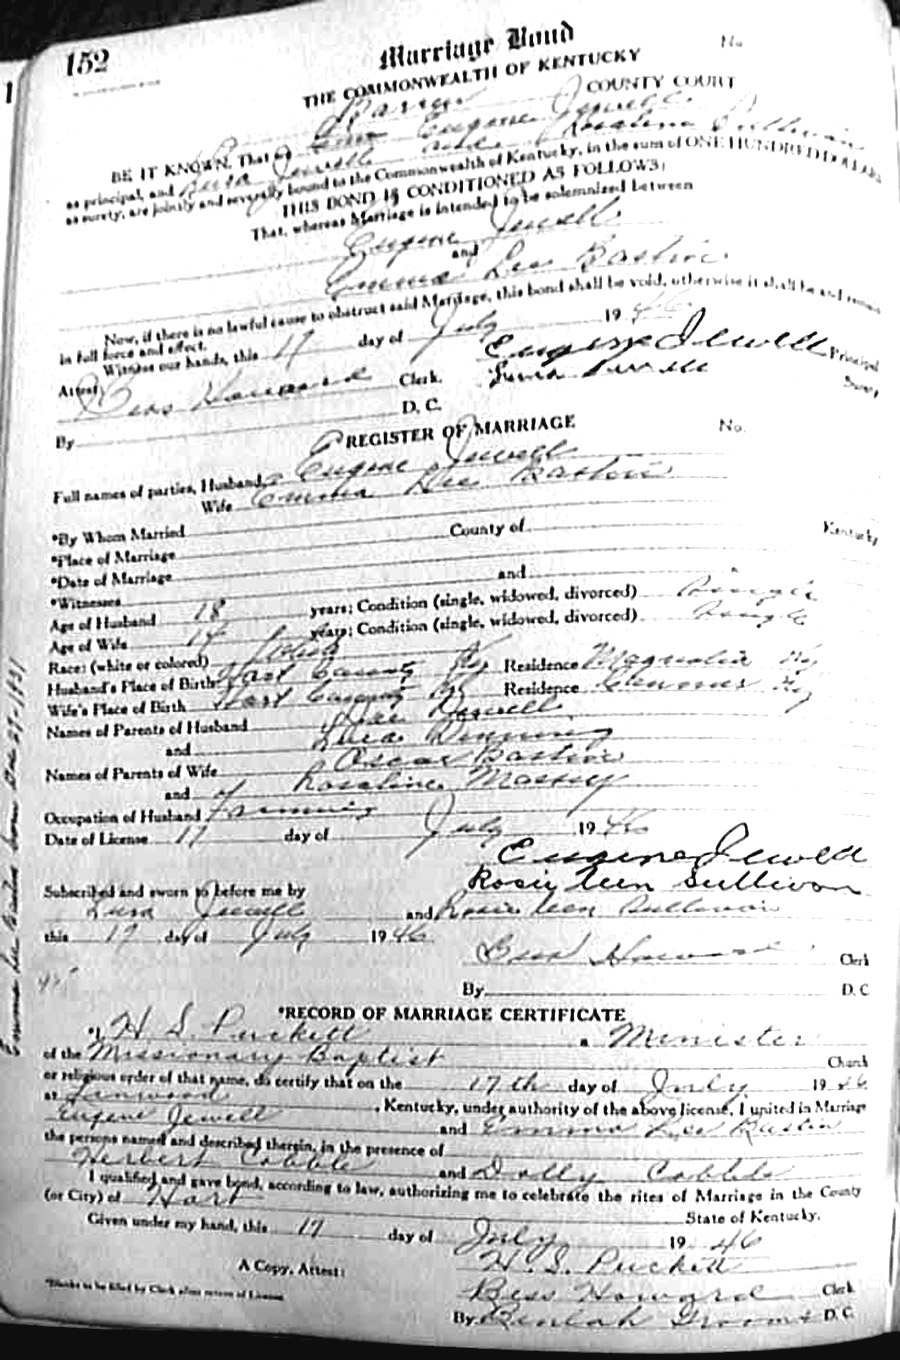 152
Marriage Bond
No.
THE COMMONWEALTH OF KENTUCKY
Barren COUNTY COURT
BE IT KNOWN, That Eugene Jewell
as principal, and Lura Jewell and Rosaline Sullivan
as surety, are jointly and severally bound to the Commonwealth of Kentucky, in the sum of ONE HUNDRED DOLLARS
THIS BOND IS CONDITIONED AS FOLLOWS:
That, whereas Marriage is intended to be solemnized between
Eugene Jewell
and
Emma Lee Bastin
Now, if there is no lawful cause to obstruct said Marriage, this bond shall be void, otherwise it shall be and remain
in full force and effect.
Witness our hands, this 17 day of July 1946
Eugene Jewell Principal
Attest Bess Howard Clerk. Lura Jewell Surety
By D. C.
REGISTER OF MARRIAGE No.
Full names of parties, Husband, Eugene Jewell
Wife Emma Lee Bastin
*By Whom Married
*Place of Marriage County of Kentucky
*Date of Marriage
*Witnesses and
Age of Husband 18 years; Condition (single, widowed, divorced) Single
Age of Wife 14 years; Condition (single, widowed, divorced) Single
Race: (white or colored) White
Husband's Place of Birth Hart County Ky Residence Magnolia Ky
Wife's Place of Birth Hart County Ky Residence Ky
Names of Parents of Husband Jewell
and
Names of Parents of Wife Oscar Bastin
and Rosaline Massey
Occupation of Husband Farming
Date of License 17 day of July 1946
Eugene Jewell
Rosie Leen Sullivan
Subscribed and sworn to before me by
Lura Jewell and Rosie Leen Sullivan
this 17 day of July 1946
Bess Howard Clerk
By D. C
Emma Lee Bastin born 1931
*RECORD OF MARRIAGE CERTIFICATE
*I, H S Puckett a Minister
of the Missionary Baptist Church
or religious order of that name, do certify that on the 17th day of July 1946
at Linwood, Kentucky, under authority of the above license, I united in Marriage
Eugene Jewell and Emma Lee Bastin
the persons named and described therein, in the presence of
Herbert Cobble and Dolly Cobble
I qualified and gave bond, according to law, authorizing me to celebrate the rites of Marriage in the County
(or City) of Hart State of Kentucky.
Given under my hand, this 17 day of July 1946
H. S. Puckett
A Copy, Attest: Bess Howard Clerk
*Blanks to be filled by Clerk after return of License
By Beulah Grooms D. C.